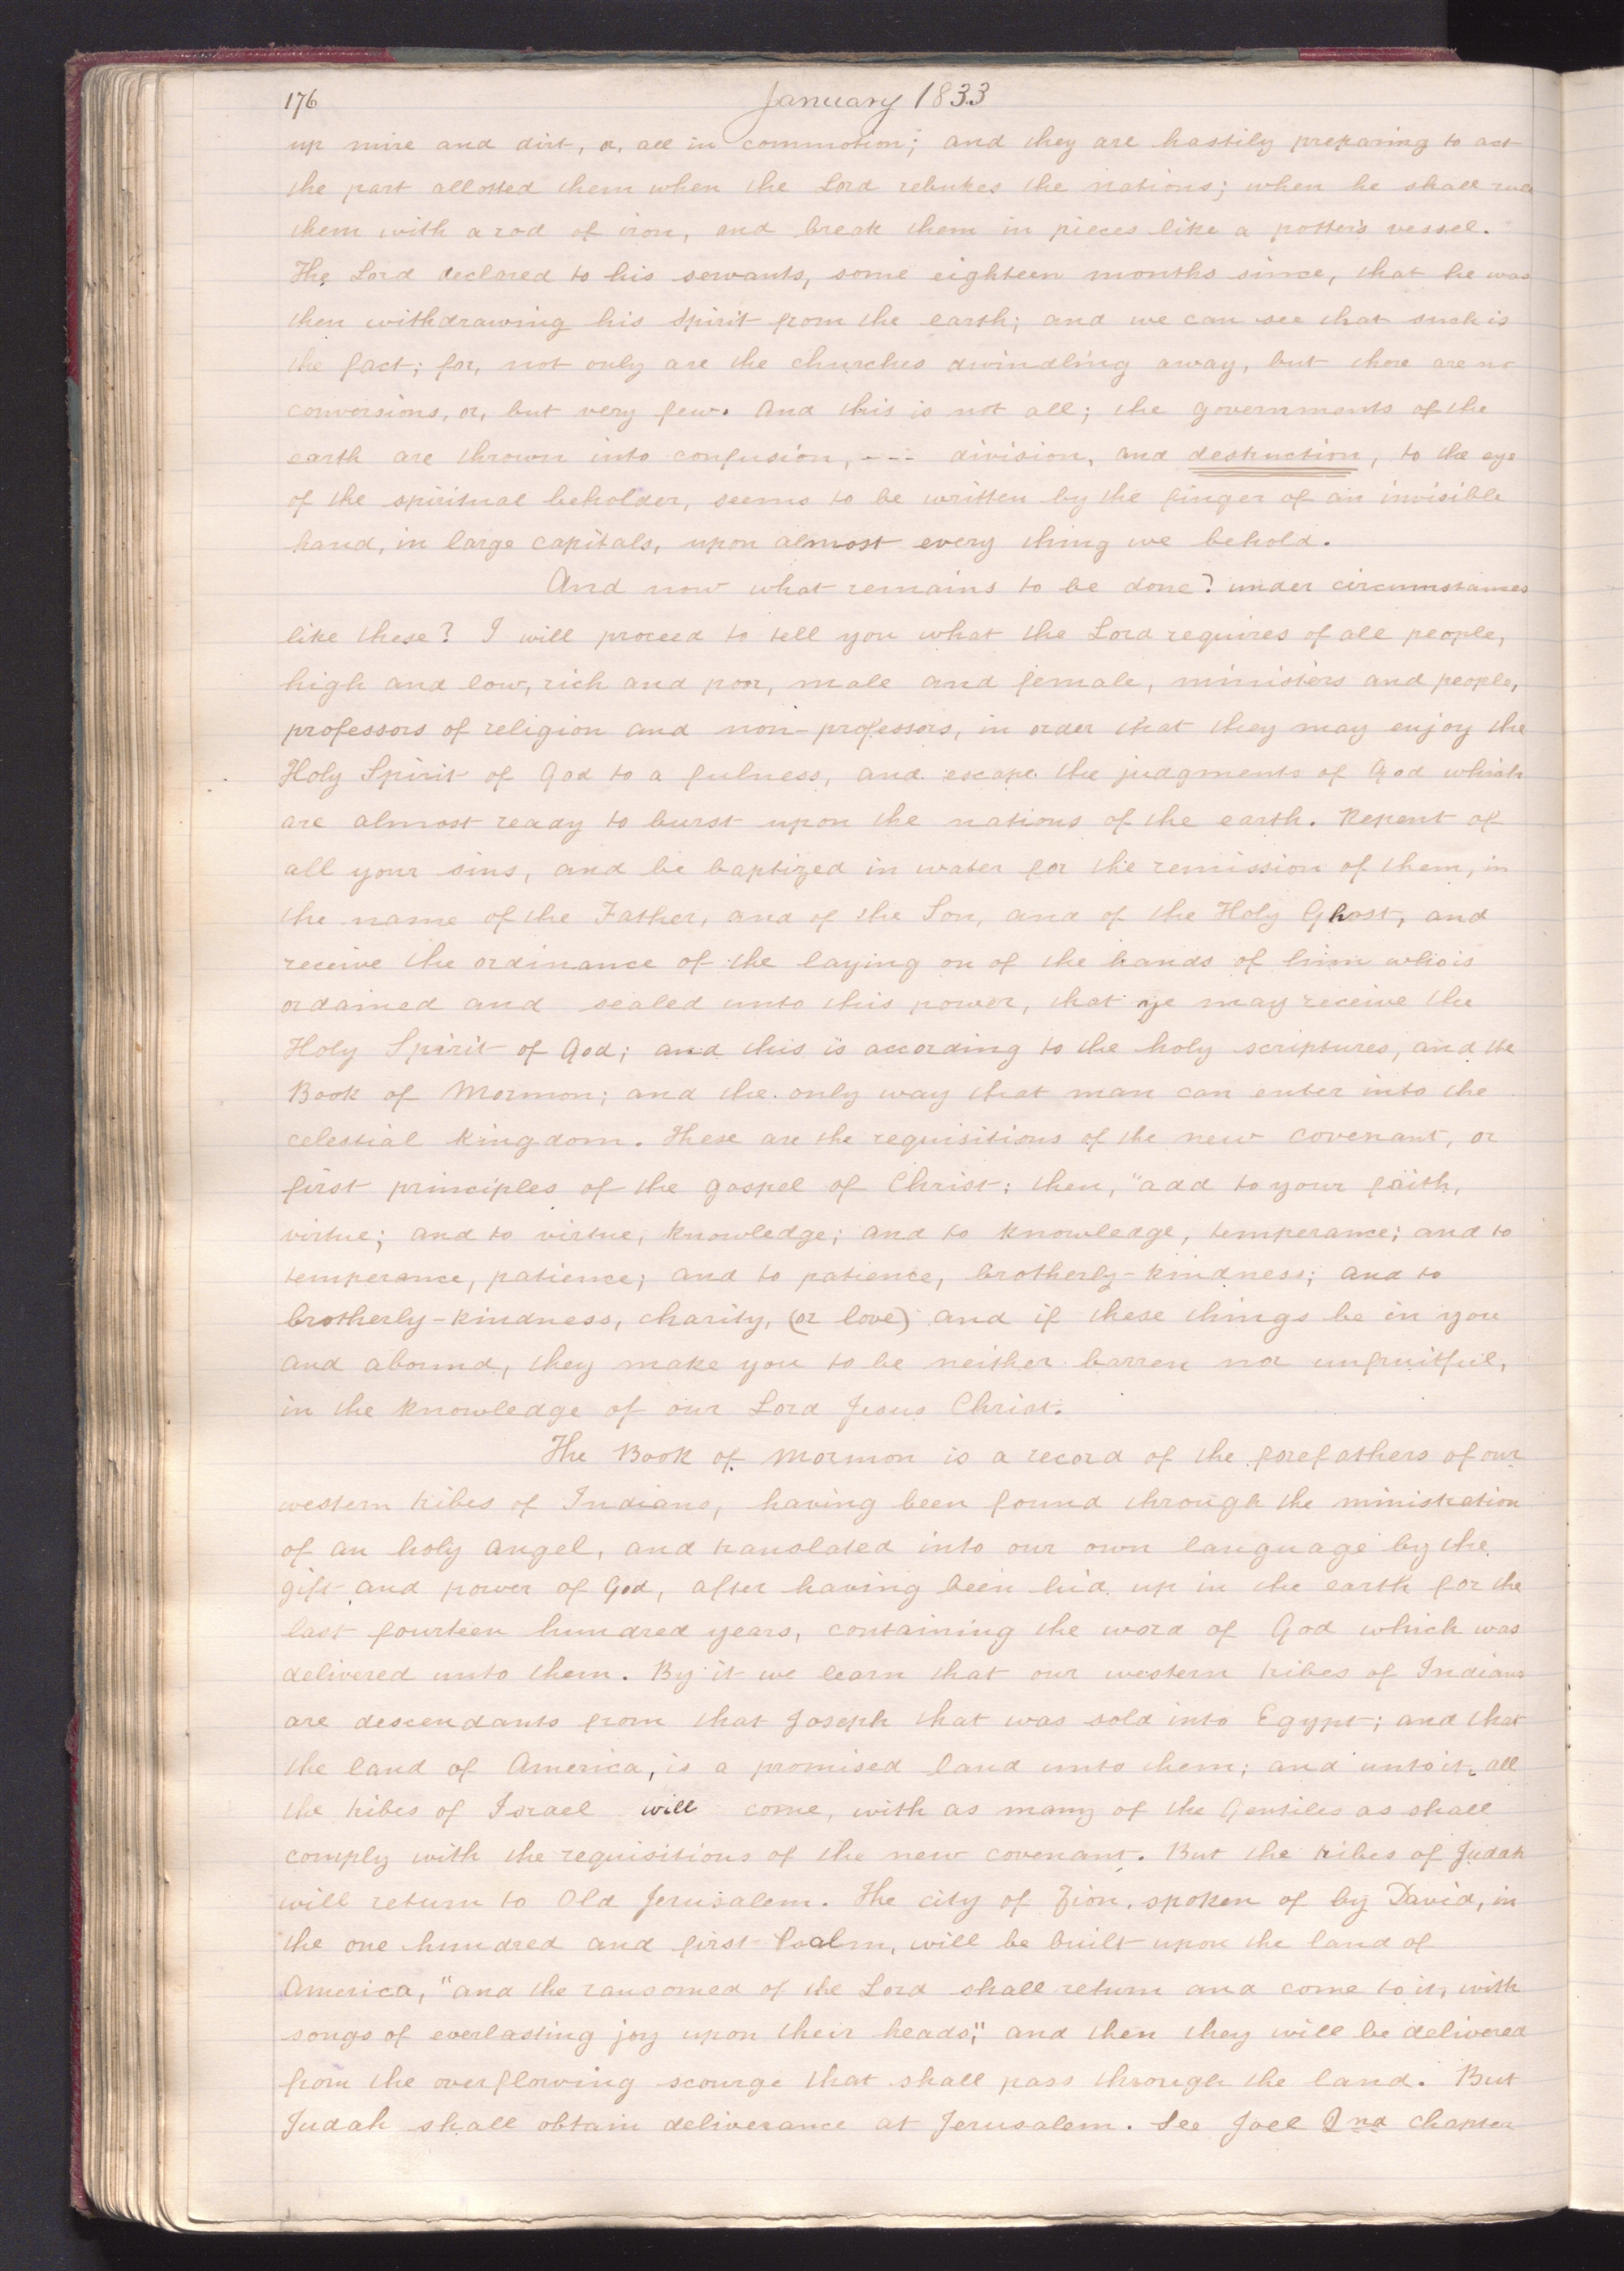 176 January 1833
up mire and dirt, are all in commotion; and they are hastily preparing to act
the part allotted them when the Lord rebukes the nations; when he shall rule
them with a rod of iron, and break them in pieces like a potter's vessel.
The Lord declared to his servants, some eighteen months since, that he was
then withdrawing his Spirit from the earth; and we can see that such is
the fact; for, not only are the churches dwindling away, but there are no
conversions, or, but very few. And this is not all; the governments of the
earth are thrown into confusion, --- division, and destruction, to the eye
of the spiritual beholder, seems to be written by the finger of an invisible
hand, in large capitals, upon almost every thing we behold.
And now what remains to be done? under circumstances
like these? I will proceed to tell you what the Lord requires of all people,
high and low, rich and poor, male and female, ministers and people,
professors of religion and non-professors, in order that they may enjoy the
Holy Spirit of God to a fulness, and escape the judgments of God which
are almost ready to burst upon the nations of the earth. Repent of
all your sins, and be baptized in water for the remission of them, in
the name of the Father, and of the Son, and of the Holy Ghost, and
receive the ordinance of the laying on of the hands of him who is
ordained and sealed unto this power, that ye may receive the
Holy Spirit of God; and this is according to the holy scriptures, and the
Book of Mormon; and the only way that man can enter into the
celestial kingdom. These are the requisitions of the new covenant, or
first principles of the gospel of Christ: then, "add to your faith,
virtue; and to virtue, knowledge; and to knowledge, temperance; and to
temperance, patience; and to patience, brotherly-kindness; and to
brotherly-kindness, charity, (or love) and if these things be in you
and abound, they make you to be neither barren nor unfruitful,
in the knowledge of our Lord Jesus Christ.
The Book of Mormon is a record of the forefathers of our
western tribes of Indians, having been found through the ministration
of an holy angel, and translated into our own language by the
gift and power of God, after having been hid up in the earth for the
last fourteen hundred years, containing the word of God which was
delivered unto them. By it we learn that our western tribes of Indians
are descendants from that Joseph that was sold into Egypt; and that
the land of America, is a promised land unto them; and unto it, all
the tribes of Israel will come, with as many of the Gentiles as shall
comply with the requisitions of the new covenant. But the tribes of Judah
will return to Old Jerusalem. The city of Zion, spoken of by David, in
the one hundred and first Psalm, will be built upon the land of
America, "and the ransomed of the Lord shall return and come to it, with
songs of everlasting joy upon their heads," and then they will be delivered
from the overflowing scourge that shall pass through the land. But
Judah shall obtain deliverance at Jerusalem. See Joel 2nd chapter